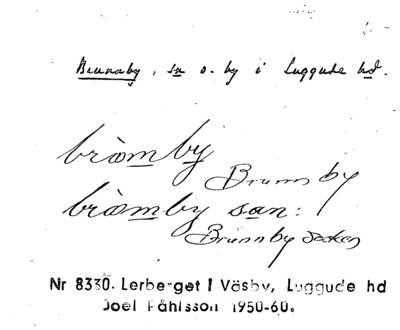 Brunnby, sn o. by i Luggude hd.
bròm by
Brunn by
bròmby san:
Brunnby socken
Nr 8330. Lerberget i Väsby, Luggude hd
Joel Påhlsson 1950-60.